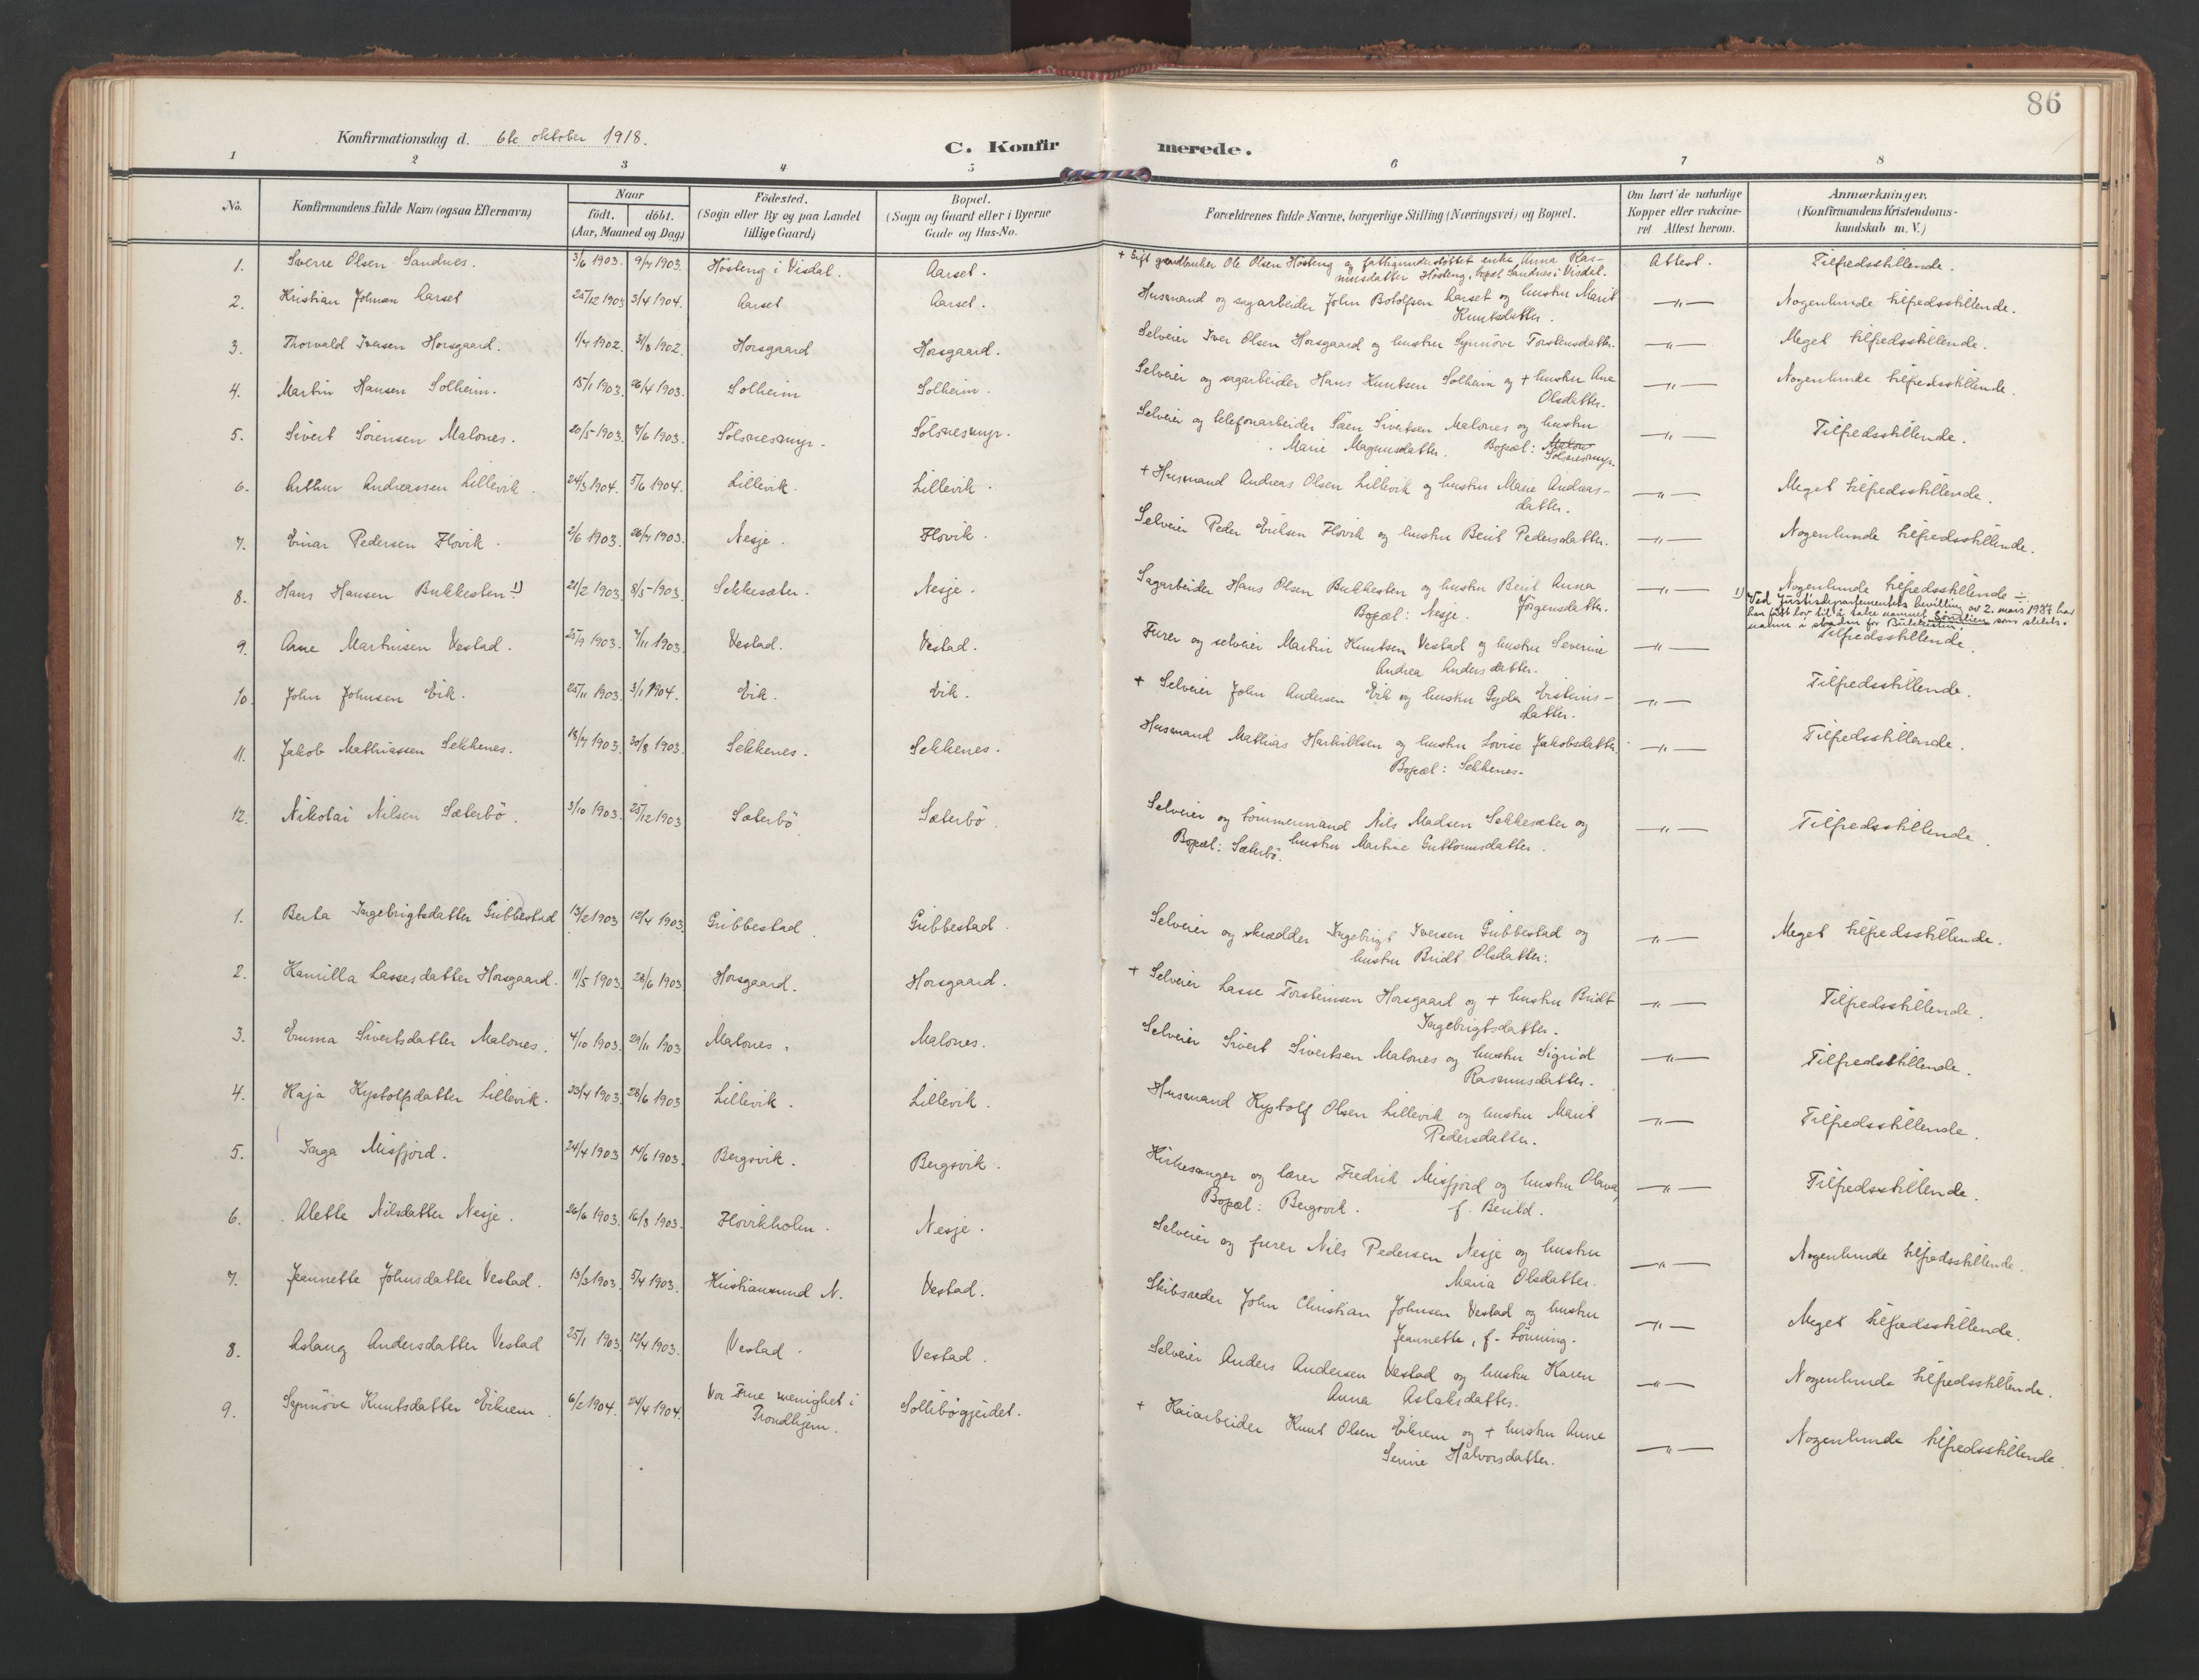 86
Konfirmationsdag d. 6te oktober 1918.
C. Konfirmerede.
1 2 3 4 5 6 7 8
No. Konfirmandens fulde Navn (ogsaa Efternavn) Naar født. døbt. (Aar, Maaned og Dag) Födested. (Sogn eller By og paa Landet tillige Gaard) Bopæl. (Sogn og Gaard eller i Byerne Gade og Hus-No. Forældrenes fulde Navne, borgerlige Stilling (Næringsvei) og Bopæl. Om havt de naturlige Kopper eller vakcineret Attest herom. Anmærkninger. (Konfirmandens Kristendomskundskab m. V.)
1. Sverre Olsen Sandnes. 3/6 1903. 9/7 1903. Hösteng i Visdal. Aarset. + Gift gaardbruker Ole Olsen Hösteng og fattigunderstöttet enke Anna Ras-
musdatter Hösteng, bopæl Sandnes i Visdal. Attest. Tilfredsstillende.
2. Kristian Johnsen Aarset 25/12 1903 3/4 1904. Aarset Aarset. Husmand og sagarbeider John Botolfsen Aarset og hustru Marit
Knutsdatter. —"— Nogenlunde tilfredsstillende.
3. Thorvald Iversen Horsgaard. 1/7 1902. 31/8 1902. Horsgaard Horsgaard. Selveier Iver Olsen Horsgaard og hustru Synnöve Torsteinsdatter. —"— Meget tilfredsstillende.
4. Martin Hansen Solheim. 15/1 1903. 26/4 1903. Solheim Solheim. Selveier og sagarbeider Hans Knutsen Solheim og + hustru Ane
Olsdatter. —"— Nogenlunde tilfredsstillende.
5. Sivert Sörensen Malones. 20/5 1903. 7/6 1903. Sölsnesmyr. Sölsnesmyr. Selveier og telefonarbeider Sören Sivertsen Malones og hustru
Marie Magnusdatter. Bopæl: Malon
Sölsnesmyr. —"— Tilfredsstillende.
6. Arthur Andreassen Lillevik. 24/3 1904. 5/6 1904. Lillevik. Lillevik. + Husmand Andreas Olsen Lillevik og hustru Marie Andreas-
datter. —"— Meget tilfredsstillende.
7. Einar Pedersen Flovik. 2/6 1903. 26/7 1903. Nesje. Flovik. Selveier Peder Eriksen Flovik og hustru Berit Pedersdatter. —"— Nogenlunde tilfredsstillende.
8. Hans Hansen Bukkesten 1) 21/2 1903. 8/5 1903. Sekkesæter. Nesje. Sagarbeider Hans Olsen Bukkesten og hustru Berit Anna
Bopæl: Nesje. Jörgensdatter. —"— Nogenlunde tilfredsstillende ÷
1) Ved Justisdepartementets bevilling av 2. mars 1937 har
han fått lov til å take navnet Sørslien som slekts-
navn i staden for Bukkesten.
9. Arne Martinsen Vestad. 25/9 1903. 7/11 1903. Vestad. Vestad. Furer og selveier Martin Knutsen Vestad og hustru Severine
Andrea Andersdatter. —"— Tilfredsstillende.
10. John Johnsen Eik. 25/11 1903. 3/1 1904. Eik. Eik. + Selveier John Andersen Eik og hustru Gyda Eistins-
datter. —"— Tilfredsstillende.
11. Jakob Mathiassen Sekkenes. 18/7 1903. 30/8 1903. Sekkenes. Sekkenes. Husmand Mathias Haskildsen og hustru Lovise Jakobsdatter.
Bopæl: Sekkenes. —"— Tilfredsstillende.
12. Nikolai Nilsen Sæterbö. 3/10 1903. 25/12 1903 Sæterbö Sæterbö. Selveier og tömmermand Nils Madsen Sekkesæter og
hustru Martine Guttormsdatter.
Bopæl: Sæterbö. —"— Tilfredsstillende.
1. Berta Ingebrigtsdatter Gribbestad 13/2 1903 12/4 1903. Gribbestad. Gribbestad. Selveier og skrædder Ingebrigt Iversen Gribbestad og
hustru Bridt Olsdatter: —"— Meget tilfredsstillende.
2. Kamilla Lassesdatter Horsgaard. 11/5 1903. 28/6 1903 Horsgaard. Horsgaard. + Selveier Lasse Torsteinsen Horsgaard og + hustru Bridt
Ingebrigtsdatter. —"— Tilfredsstillende.
3. Emma Sivertsdatter Malones. 4/10 1903. 29/11 1903 Malones. Malones. Selveier Sivert Sivertsen Malones og hustru Sigrid
Rasmusdatter. —"— Tilfredsstillende.
4. Kaja Kystolfsdatter Lillevik. 23/4 1903. 28/6 1903 Lillevik. Lillevik. Husmand Kystolf Olsen Lillevik og hustru Marit
Pedersdatter. —"— Tilfredsstillende.
5. Inga Misfjord. 24/4 1903 14/6 1903. Bergsvik. Bergsvik. Kirkesanger og lærer Fredrik Misfjord og hustru Olava,
Bopæl: Bergsvik. f. Berild. —"— Tilfredsstillende.
6. Alette Nilsdatter Nesje. 26/6 1903. 16/8 1903. Flovikholm. Nesje. Selveier og furer Nils Pedersen Nesje og hustru
Maria Olsdatter. —"— Nogenlunde tilfredsstillende.
7. Jeannette Johnsdatter Vestad. 13/3 1903. 5/4 1903. Kristiansund N. Vestad. Skibsreder John Christian Johnsen Vestad og hustru
Jeannette, f. Lönning. —"— Meget tilfredsstillende.
8. Aslaug Andersdatter Vestad 25/1 1903. 12/4 1903. Vestad. Vestad. Selveier Anders Andersen Vestad og hustru Karen
Anna Aslaksdatter. —"— Nogenlunde tilfredsstillende.
9. Synnöve Knutsdatter Eikrem. 6/2 1904. 24/4 1904. Vor Frue menighet i
Trondhjem. Sollibögjeidet. + Kaiarbeider Knut Olsen Eikrem og + hustru Anne
Serine Halvorsdatter. —"— Nogenlunde tilfredsstillende.